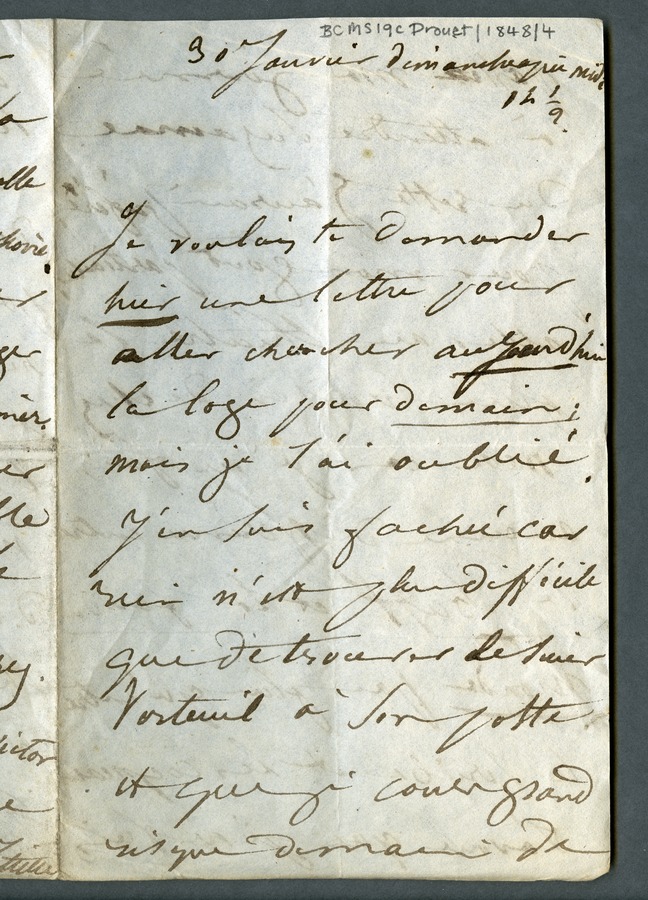 BC MS 19c Drouet/1848/4
30 Janvier dimanche après midi
12 ½
Je voulais te demander
hier une lettre pour
aller chercher aujourd'hui
la loge pour demain;
mais je l'ai oublié.
J'en suis fachée car
rien n'est plus difficile
que de trouver le sieur
Verteuil à son poste
et que je cours grand
risque demain de